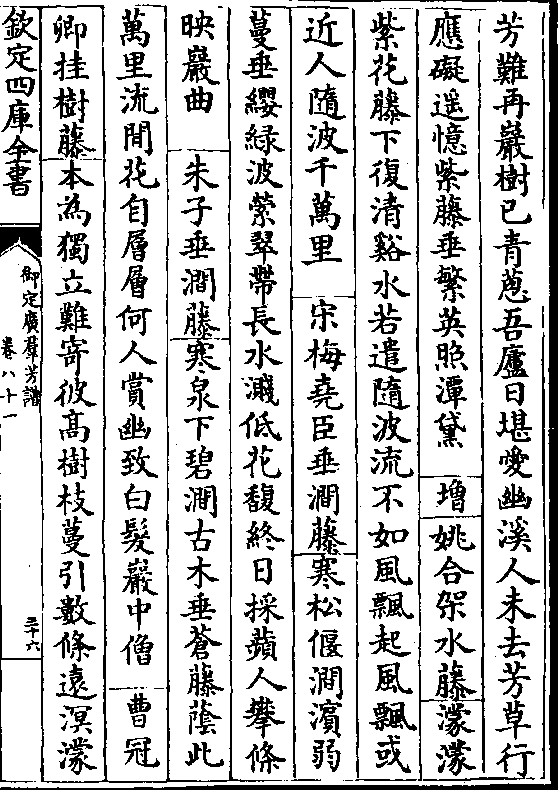 芳難再巖樹已青葱吾廬日堪愛幽溪人未去芳草行
應礙遥憶紫藤垂繁英照潭黛　增　姚合架水藤濛濛
紫花藤下復清谿水若遣隨波流不如風飄起風飄或
近人隨波千萬里　宋梅堯臣垂澗藤寒松偃澗濵弱
蔓垂纓緑波縈翠帶長水濺低花馥終日採蘋人攀條
映巖曲　朱子垂澗藤寒泉下碧澗古木垂蒼藤蔭此
萬里流閒花自層層何人賞幽致白髮巖中僧　曹冠
卿挂樹藤本為獨立難寄彼高樹枝蔓引數條遠溟濛
欽定四庫全書
御定廣羣芳譜
卷八十一
三十六